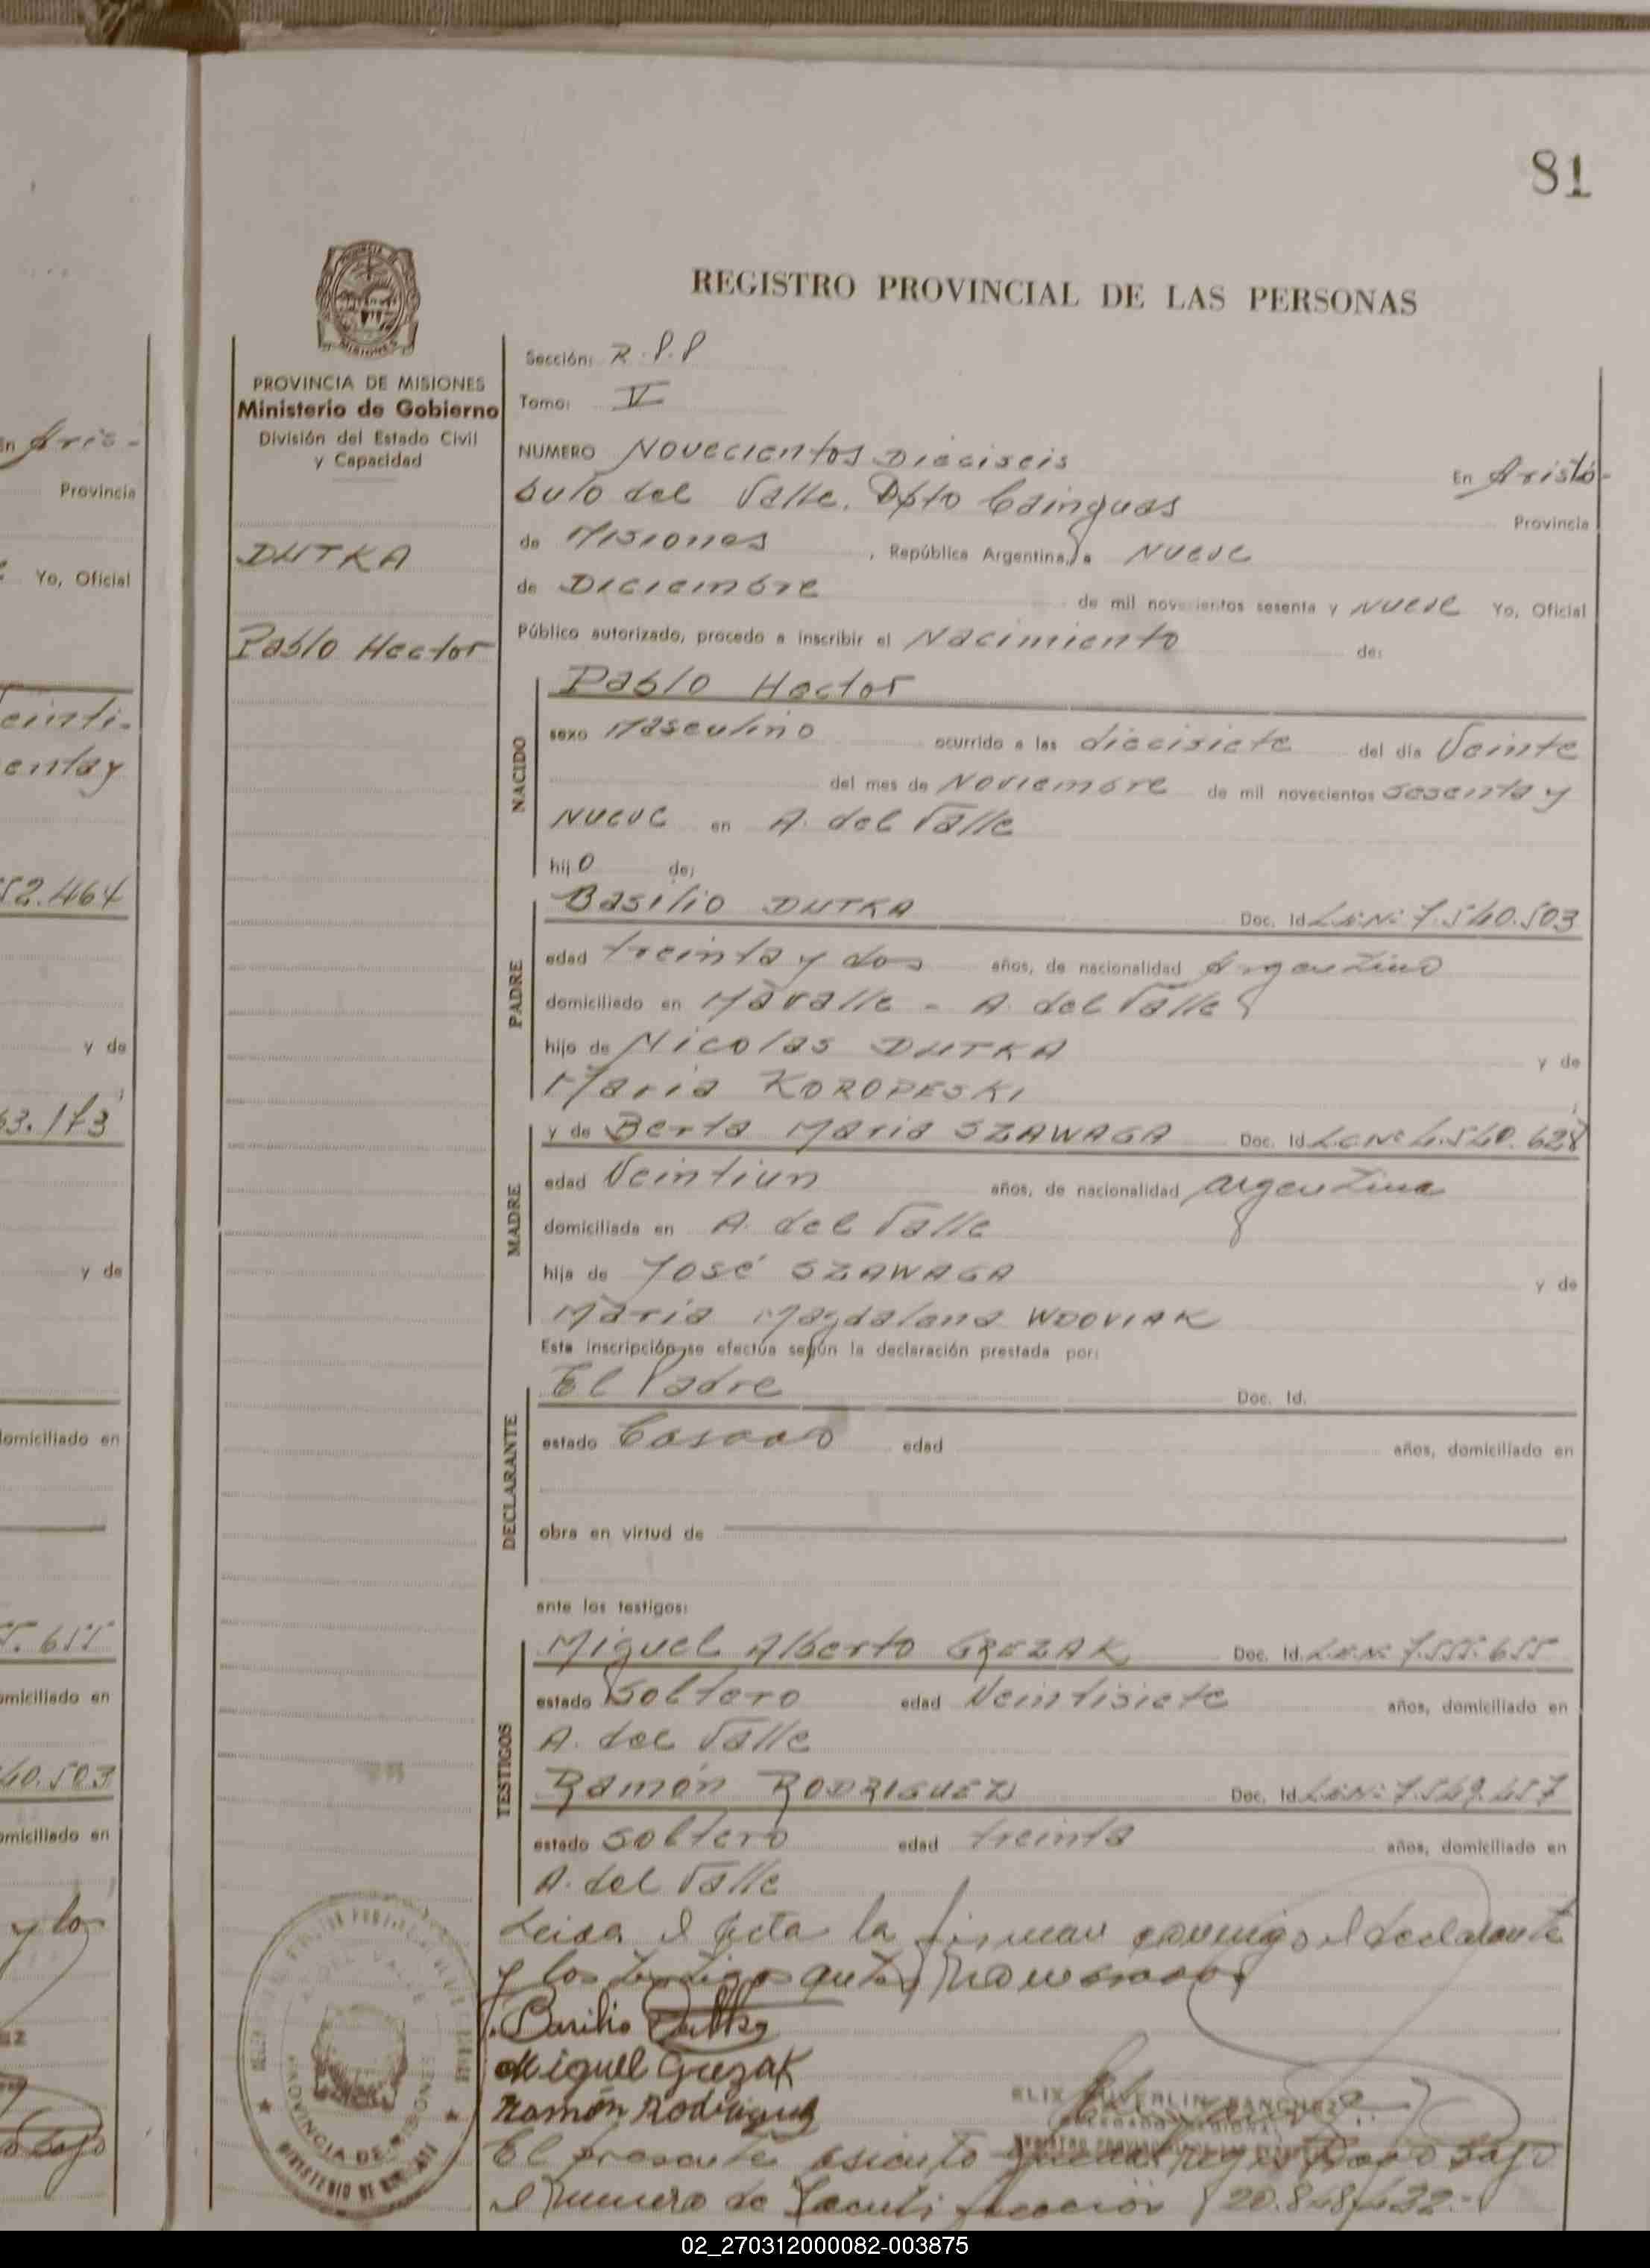 81
REGISTRO PROVINCIAL DE LAS PERSONAS
PROVINCIA DE MISIONES
Ministerio de Gobierno
División del Estado Civil
y Capacidad
DUTKA
Pablo Hector
Sección: R.P.P
Tomo: V
NUMERO Novecientos Dieciseis En Aristó-
bulo del Valle. Dpto Cainguas Provincia
de Misiones, República Argentina, a Nueve
de Diciembre de mil novecientos sesenta y nueve Yo, Oficial
Público autorizado, procedo a inscribir el Nacimiento de:
NACIDO
Pablo Hector
sexo Masculino ocurrido a las diecisiete del día Veinte
del mes de Noviembre de mil novecientos sesenta y
nueve en A. del Valle
hijo de:
PADRE
Basilio DUTKA Doc. Id. L.E.Nº 7.540.503
edad treinta y dos años, de nacionalidad Argentino
domiciliado en Mavalle - A. del Valle
hijo de Nicolas DUTKA y de
Maria KOROPESKI
MADRE
y de Berta Maria SZAWAGA Doc. Id. L.C.Nº 4.540.628
edad Veintiun años, de nacionalidad argentina
domiciliada en A. del Valle
hija de José SZAWAGA y de
Maria Magdalena WDOVIAK
Esta inscripción se efectúa según la declaración prestada por:
DECLARANTE
El Padre Doc. Id.
estado Casado edad años, domiciliado en
obra en virtud de
ante los testigos:
TESTIGOS
Miguel Alberto GREZAK Doc. Id. L.E.Nº 7.555.655
estado Soltero edad Veintisiete años, domiciliado en
A. del Valle
Ramón RODRIGUEZ Doc. Id. L.E.Nº 7.549.457
estado soltero edad treinta años, domiciliado en
A. del Valle
Leida el Acta la firman conmigo el declarante
y los testigos antes nombrados
Basilio Dutka
Miguel Grezak
Ramón Rodriguez
SANCHEZ
PROVINCIA DE MISIONES
El presente asiento queda registrado bajo
el numero de 20.848.432.-
En Aris-
Provincia
Yo, Oficial
einti-
enta y
52.464
y de
63.173
y de
domiciliado en
5.655
domiciliado en
40.503
domiciliado en
y los
bajo
02_270312000082-003875